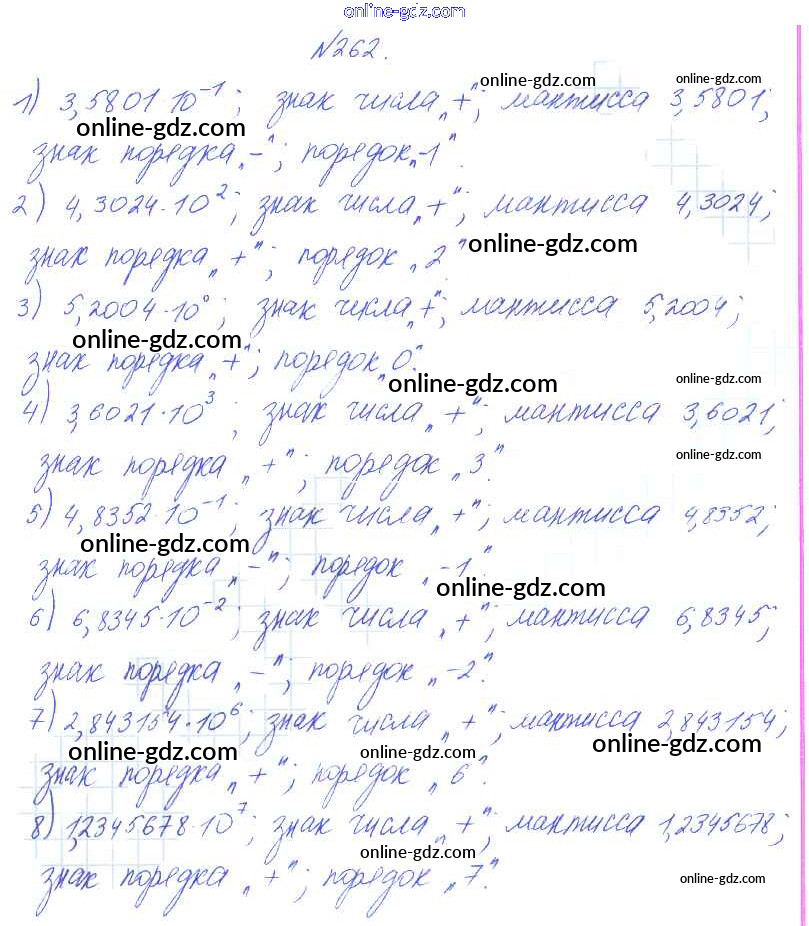 online-gdz.com
№262.
online-gdz.com online-gdz.com
1) 3,5801·10⁻¹; знак числа „+"; мантисса 3,5801;
online-gdz.com
знак порядка „-"; порядок „-1".
2) 4,3024·10²; знак числа „+"; мантисса 4,3024;
знак порядка „+"; порядок „2"
online-gdz.com
3) 5,2004·10⁰; знак числа „+"; мантисса 5,2004;
online-gdz.com
знак порядка „+"; порядок „0".
online-gdz.com online-gdz.com
4) 3,6021·10³; знак числа „+"; мантисса 3,6021;
знак порядка „+"; порядок „3".
online-gdz.com
5) 4,8352·10⁻¹; знак числа „+"; мантисса 4,8352;
online-gdz.com
знак порядка „-"; порядок „-1".
online-gdz.com
6) 6,8345·10⁻²; знак числа „+"; мантисса 6,8345;
знак порядка „-"; порядок „-2".
7) 2,843154·10⁶; знак числа „+"; мантисса 2,843154;
online-gdz.com online-gdz.com online-gdz.com
знак порядка „+"; порядок „6".
8) 1,2345678·10⁷; знак числа „+"; мантисса 1,2345678;
online-gdz.com
знак порядка „+"; порядок „7".
online-gdz.com